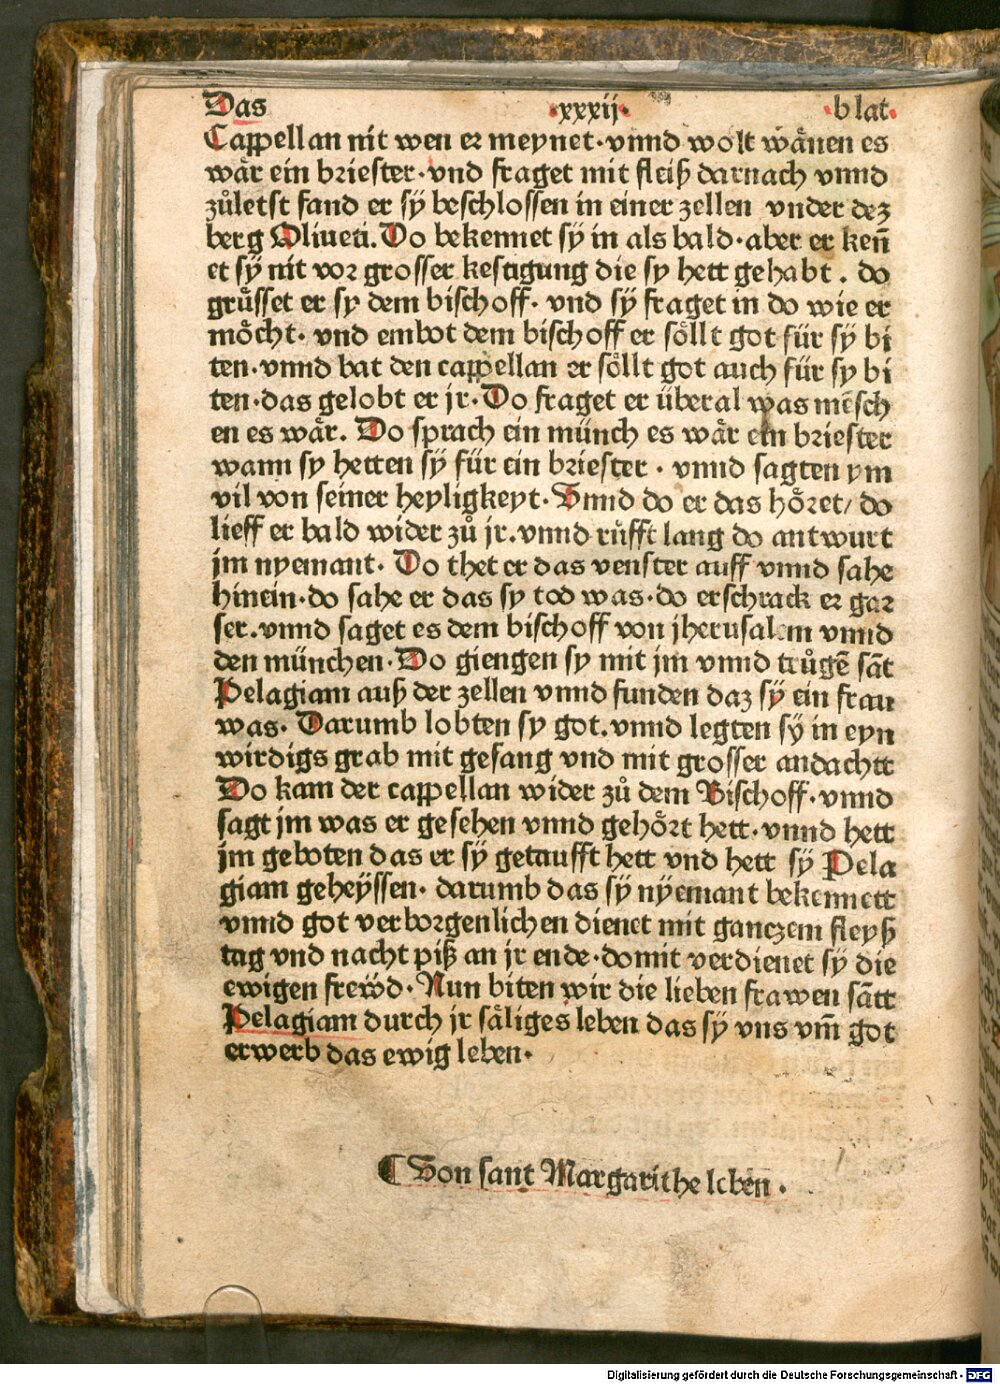 Das ·xxxij· blat·
Cappellan nit wen er meynet· vnnd wolt wånen es
wår ein briester· vnd fraget mit fleiß darnach vnnd
zůletst fand er sÿ beschlossen in einer zellen vnder dez
berg Oliueti. Do bekennet sÿ in als bald· aber er keñ
et sÿ nit vor grosser kestigung die sy hett gehabt . do
grůsset er sy dem bischoff· vnd sÿ fraget in do wie er
mőcht· vnd embot dem bischoff er sőllt got für sÿ bi
ten· vnnd bat den cappellan er sőllt got auch für sy bi
ten· das gelobt er jr· Do fraget er überal was mēsch
en es wår. Do sprach ein münch es wår ein briester
wann sy hetten sÿ für ein briester · vnnd sagten ym
vil von seiner heyligkeyt· Vnnd do er das hőret/ do
lieff er bald wider zů jr. vnnd růfft lang do antwurt
jm nyemant· Do thet er das venster auff vnnd sahe
hinein· do sahe er das sy tod was· do erschrack er gar
ser. vnnd saget es dem bischoff von jherusalem vnnd
den münchen· Do giengen sy mit jm vnnd trůgē sāt
Pelagiam auß der zellen vnnd funden daz sÿ ein frau
was· Darumb lobten sy got. vnnd legten sÿ in eyn
wirdigs grab mit gesang vnd mit grosser andachtt
Do kam der cappellan wider zů dem Bischoff· vnnd
sagt jm was er gesehen vnnd gehőrt hett· vnnd hett
jm geboten das er sÿ getaufft hett vnd hett sÿ Pela
giam geheÿssen· darumb das sÿ nÿemant bekennett
vnnd got verborgenlichen dienet mit ganczem fleyß
tag vnd nacht piß an jr ende· domit verdienet sÿ die
ewigen frewd· Nun biten wir die lieben frawen sātt
Pelagiam durch jr såliges leben das sÿ vns vm̄ got
erwerb das ewig leben·
¶ Von sant Margarithe leben ·
Digitalisierung gefördert durch die Deutsche Forschungsgemeinschaft - DFG